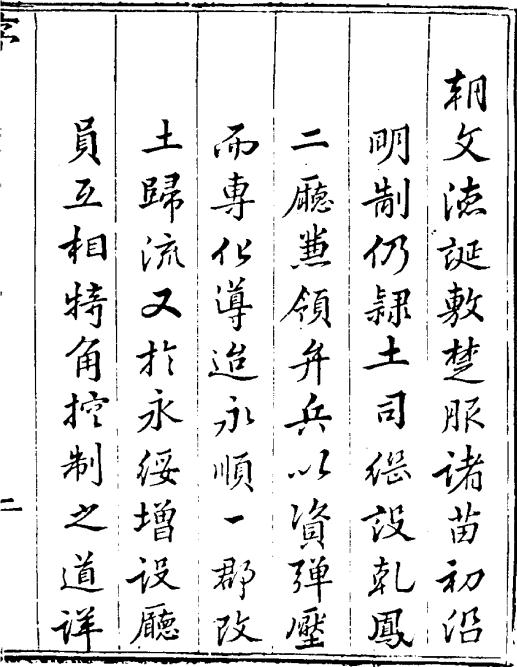 朝文德誕敷楚服諸苗初沿
明制仍隸土司繼設乾鳳
二廳兼領弁兵以資彈壓
而專化導迨永順一郡改
土歸流又於永綏增設廳
員互相犄角控制之道詳
序
二